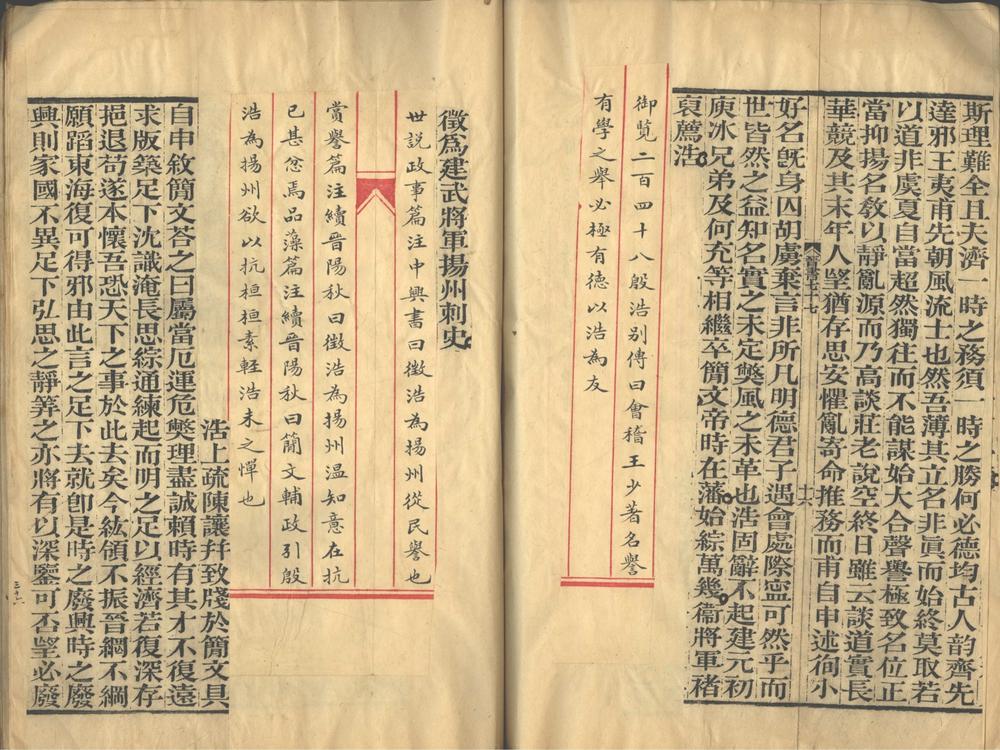 斯理難全且夫濟一時之務須一時之勝何必德均古人韵齊先
達邪王夷甫先朝風流士也然吾薄其立名非眞而始終莫取若
以道非虞夏自當超然獨往而不能謀始大合聲譽極致名位正
當抑揚名敎以靜亂源而乃高談莊老說空終日雖云談道實長
華競及其末年人望猶存思安懼亂寄命推務而甫自申述徇小
晉書七十七
十六
好名旣身囚胡虜棄言非所凡明德君子遇會處際寧可然乎而
世皆然之益知名實之未定獘風之未革也浩固辭不起建元初
庾冰兄弟及何充等相繼卒簡文帝時在藩始綜萬幾衞將軍褚
裒薦浩
御覽二百四十八殷浩别傳曰會稽王少著名譽
有學之舉必極有德以浩為友
徵爲建武將軍揚州刺史
世説政事篇注中興書曰徵浩為揚州從民譽也
賞譽篇注續晉陽秋曰徵浩為揚州温知意在抗
已甚忿焉品藻篇注續晉陽秋曰蕳文輔政引殷
浩為揚州欲以抗桓桓素輕浩未之憚也
浩上疏陳讓幷致牋於簡文具
自申敘簡文荅之曰屬當厄運危獘理盡誠賴時有其才不復遠
求版築足下沈識淹長思綜通練起而明之足以經濟若復深存
挹退苟遂本懷吾恐天下之事於此去矣今紘領不振晉網不綱
願蹈東海復可得邪由此言之足下去就卽是時之廢興時之廢
興則家國不異足下弘思之靜筭之亦將有以深鑒可否望必廢